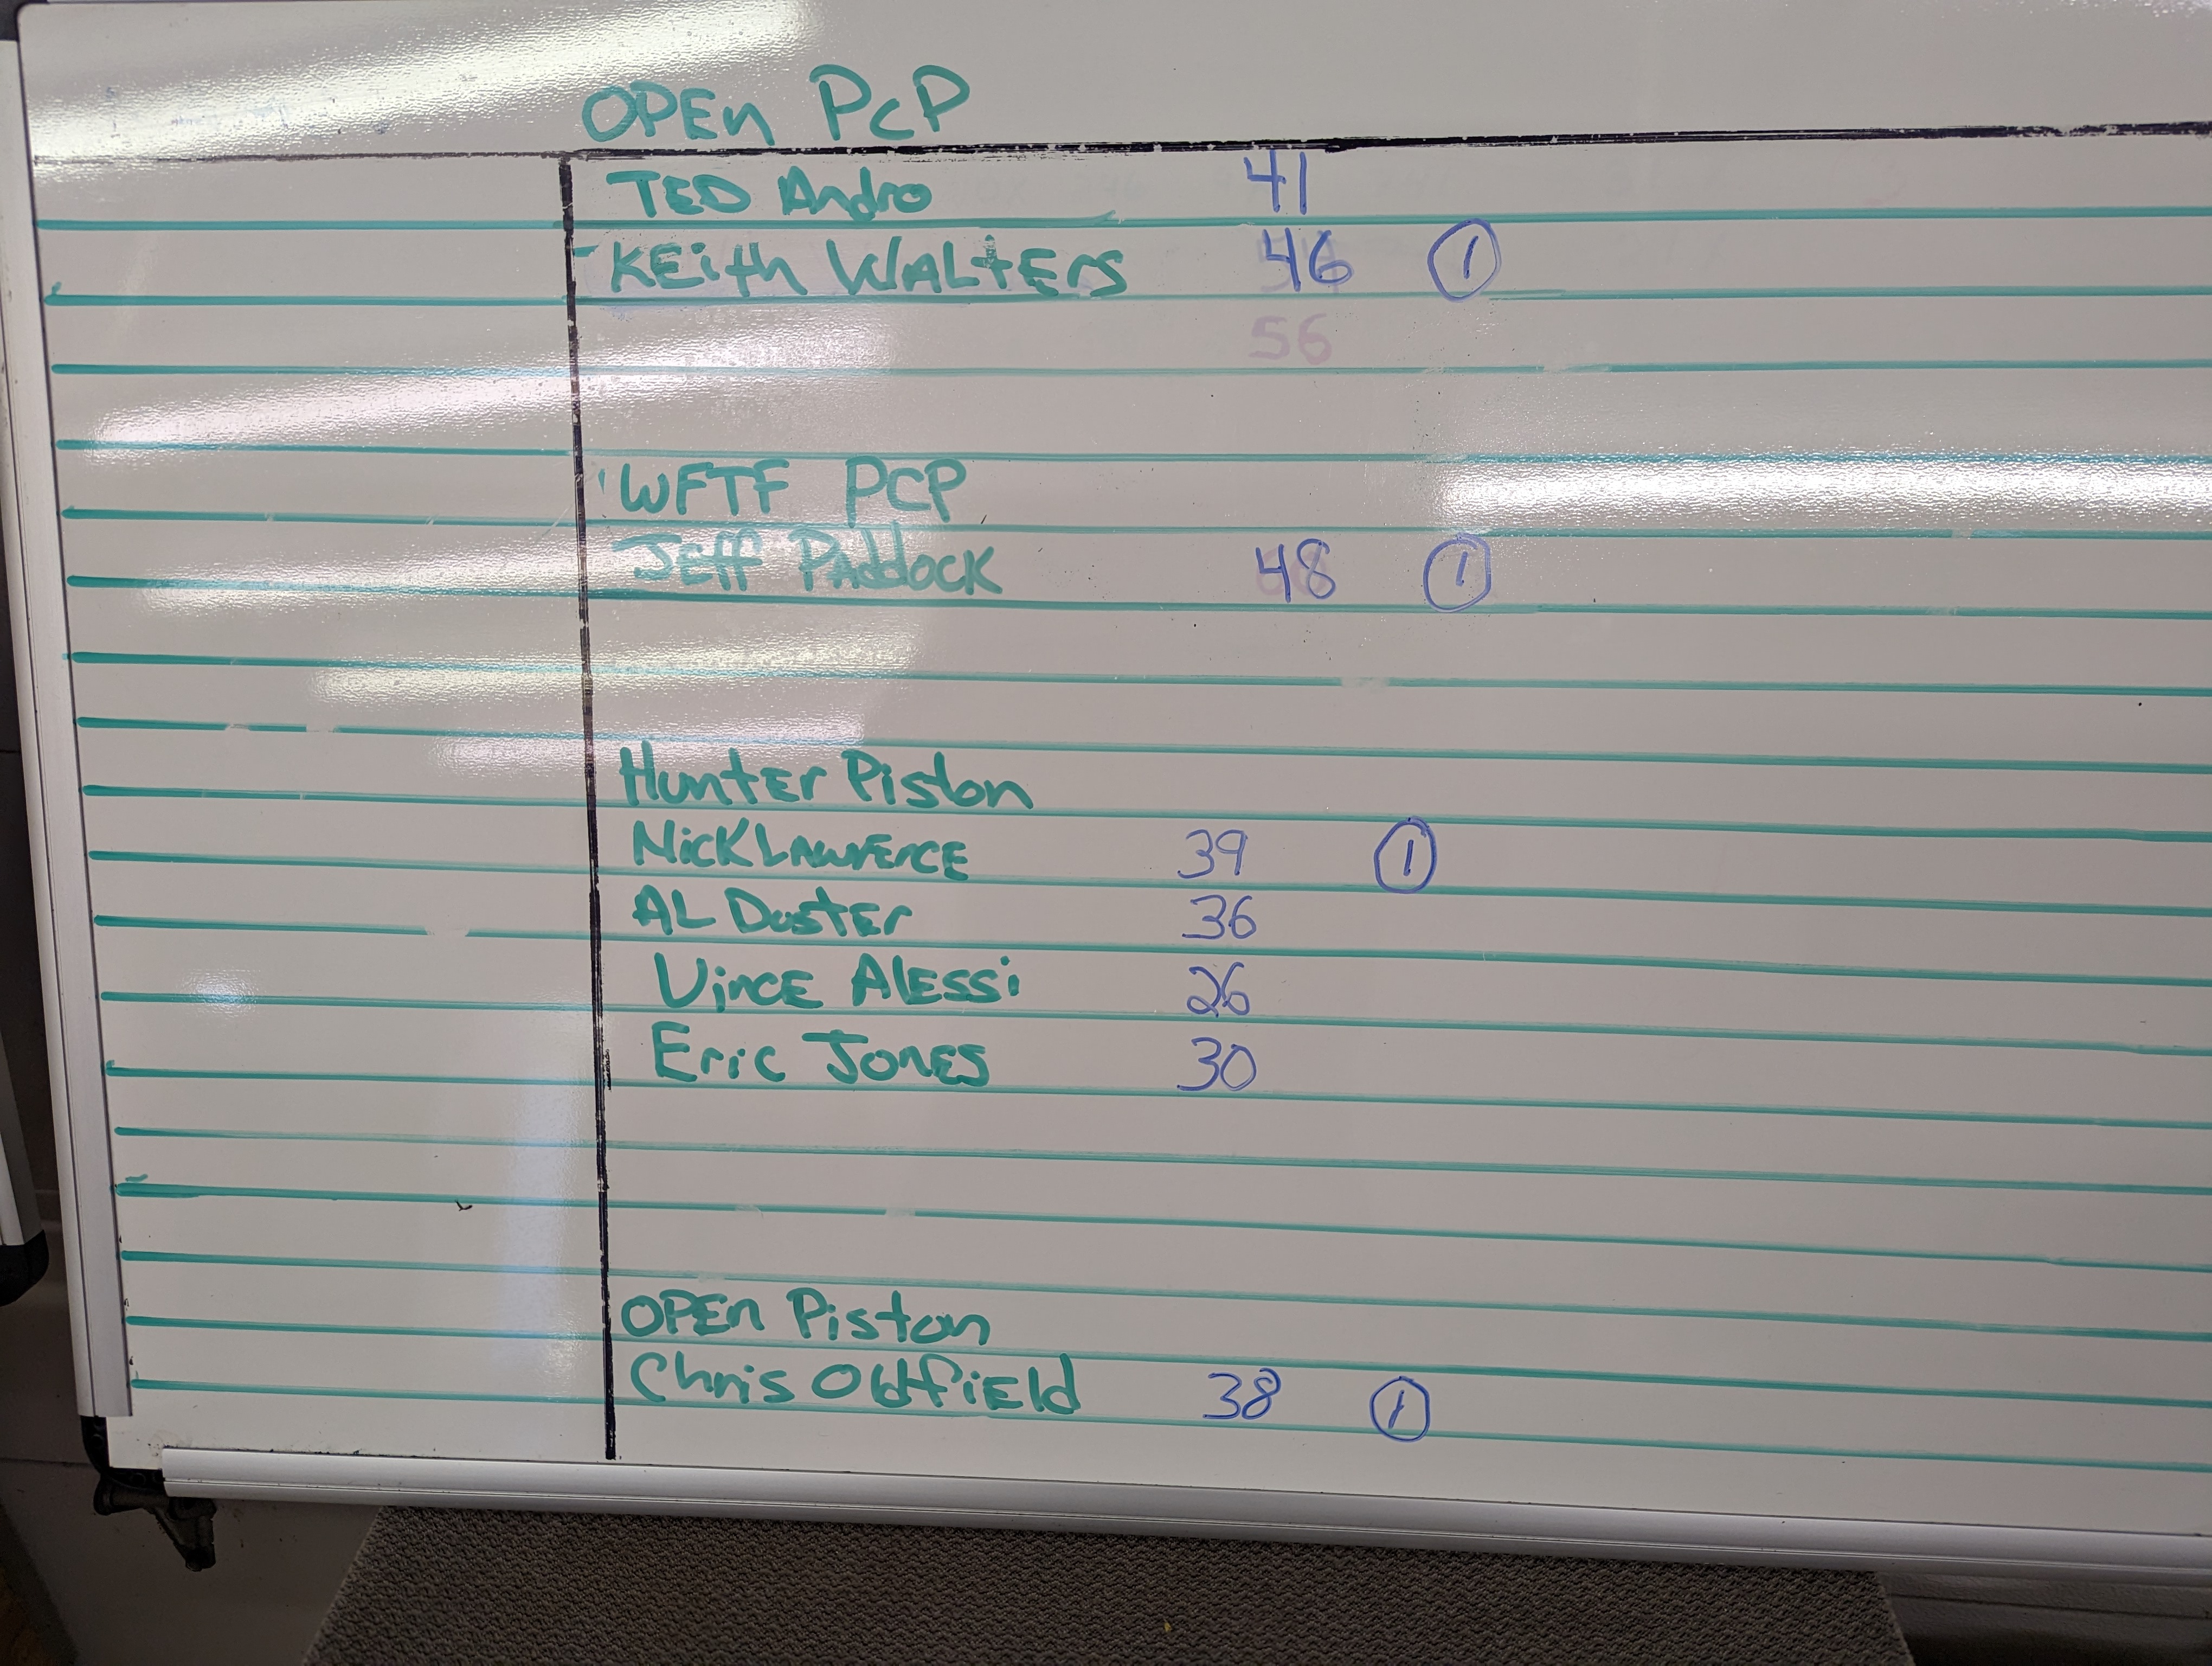 OPEn PcP
TED Andro 41
KEith WALtErs 46 1
56
WFTF PCP
JEff PAddock 48 1
HuntEr Piston
Nick LAwrEncE 39 1
AL DustEr 36
VincE AlEssi 26
Eric JonEs 30
OPEn Piston
Chris OldfiEld 38 1